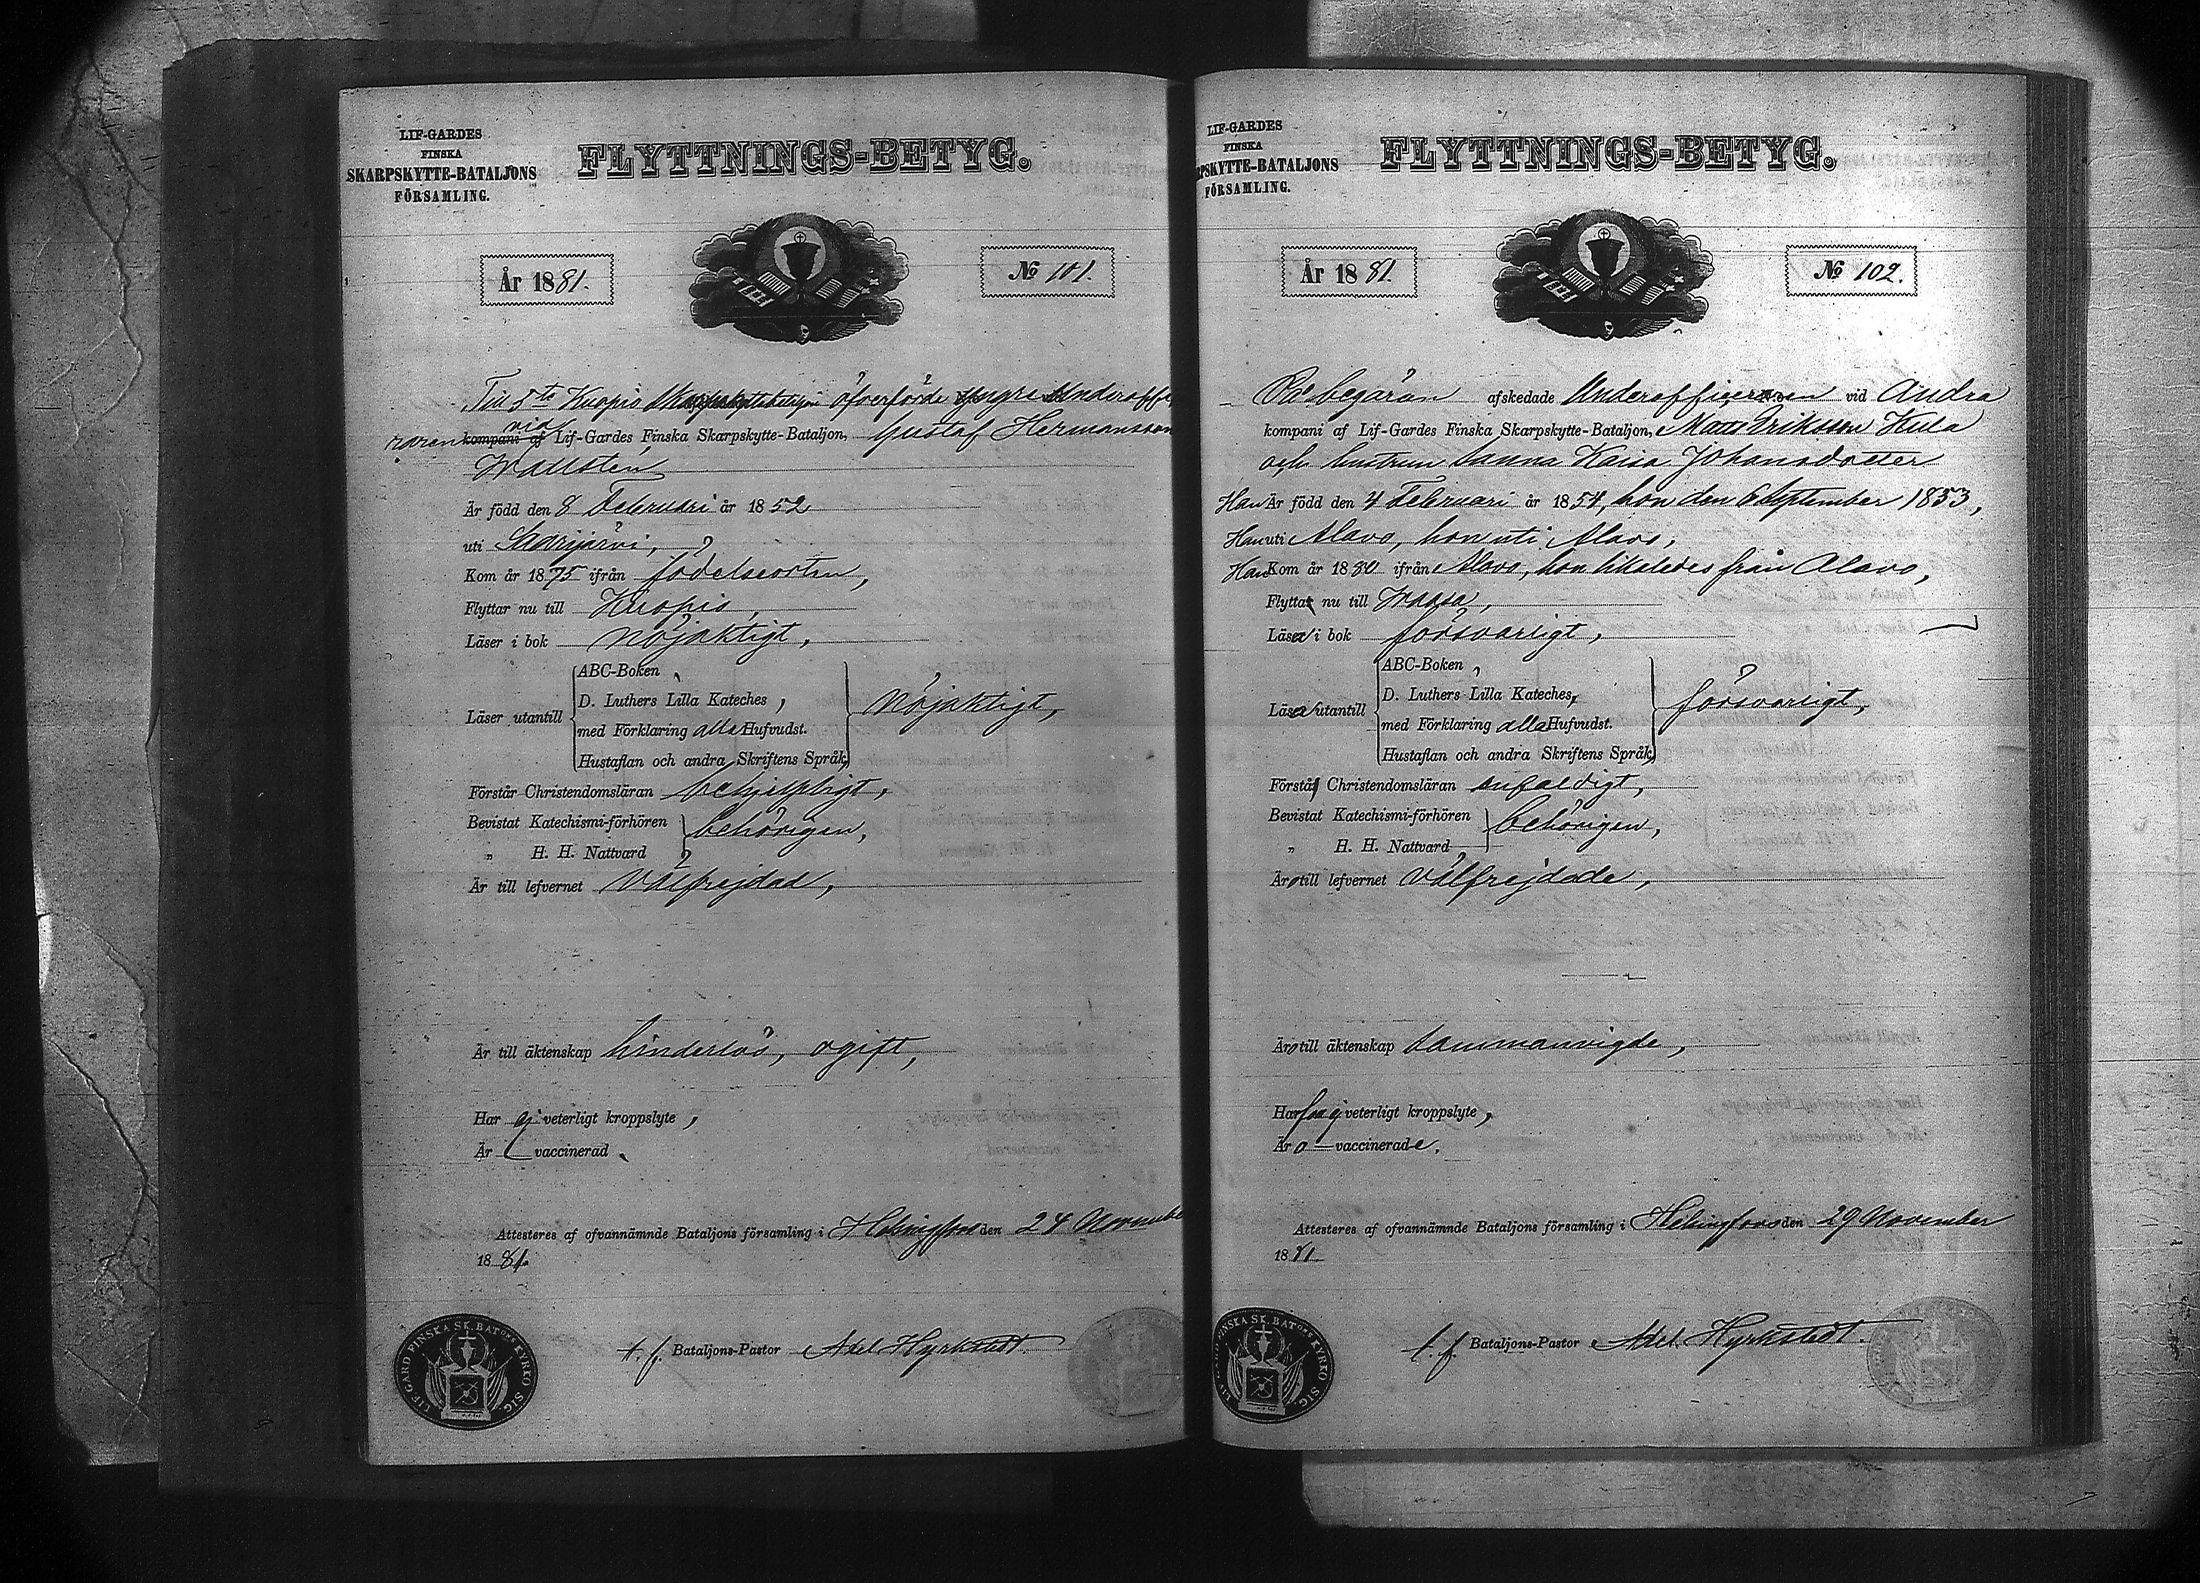 LIF-GARDES
FINSKA
SKARPSKYTTE-BATALJONS
FÖRSAMLING.
FLYTTNINGS-BETYG.
År 1881.
№ 101.
Till 5te Kuopio Skarpskyttebataljon öfverförde yngre Underoffi-
ceraren kompani af vid Lif-Gardes Finska Skarpskytte-Bataljon, Gustaf Hermansson
Wallstén
Är född den 8 Februari år 1852
uti Saarijärvi,
Kom år 1875 ifrån födelseorten,
Flyttar nu till Kuopio,
Läser i bok nöjaktigt,
Läser utantill
ABC-Boken,
D. Luthers Lilla Kateches,
med Förklaring alla Hufvudst.
Hustaflan och andra Skriftens Språk,
nöjaktigt,
Förstår Christendomsläran behjelpligt,
Bevistat Katechismi-förhören
„ H. H. Nattvard
behörigen,
Är till lefvernet välfrejdad,
Är till äktenskap hinderlös, ogift,
Har ej veterligt kroppslyte,
Är vaccinerad.
Attesteres af ofvannämnde Bataljons församling i Helsingfors den 24 November
1881.
LIF-GARD FINSKA SK. BATONS KYRKO SIG.
t. f. Bataljons-Pastor Axel Hyrkstedt.
LIF-GARDES
FINSKA
RPSKYTTE-BATALJONS
FÖRSAMLING.
FLYTTNINGS-BETYG.
År 1881.
№ 102.
På begäran afskedade Underofficeraren vid Andra
kompani af Lif-Gardes Finska Skarpskytte-Bataljon, Matts Eriksson Kula
och hustrun Sanna Kaisa Johansdotter
Han Är född den 4 Februari år 1854, hon den 6 September 1853,
Han uti Alavo, hon uti Alavo,
Han Kom år 1880 ifrån Alavo, hon likaledes från Alavo,
Flytta nu till Waasa,
Läsa i bok försvarligt,
Läsa utantill
ABC-Boken,
D. Luthers Lilla Kateches,
med Förklaring alla Hufvudst.
Hustaflan och andra Skriftens Språk,
försvarligt,
Förstå Christendomsläran enfaldigt,
Bevistat Katechismi-förhören
„ H. H. Nattvard
behörigen,
Äro till lefvernet välfrejdade,
Äro till äktenskap sammanvigde,
Hafva ej veterligt kroppslyte,
Äro vaccinerade.
Attesteres af ofvannämnde Bataljons församling i Helsingfors den 29 November
1881.
LIF-GARD FINSKA SK. BATONS KYRKO SIG.
t. f. Bataljons-Pastor Axel Hyrkstedt.